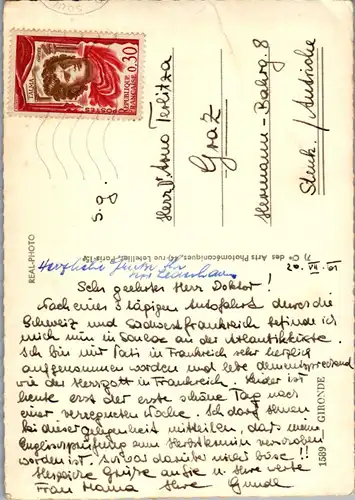 TALMA
0,30
POSTES
REPUBLIQUE FRANCAISE
S.g.
Herrn Dr Arno Terlitza
Graz
Hermann-Bahrg. 8
Steierk. / Autriche
REAL-PHOTO
des Arts Photomécaniques, 44, rue Letellier, Paris-15e
Herzliche Grüße Ihr
20. VII. 61
Sehr geehrter Herr Doktor!
Nach einer 3 tägigen Autofahrt durch die
Schweiz und Südwestfrankreich befinde ich
mich nun in Soulac an der Atlantikküste.
Ich bin mit Fati in Frankreich sehr herzlich
aufgenommen worden und lebe dementsprechend
wie der Herrgott in Frankreich. Leider ist
heute erst der erste schöne Tag nach
einer verregneten Woche. Ich darf Ihnen
bei dieser Gelegenheit mitteilen, dass meine
Englischprüfung zum Herbsttermin verschoben
worden ist. Sei darüber nicht böse!!
Herzliche Grüße an Sie u. Ihre werte
Frau Mama Ihre Gundl
1589 GIRONDE